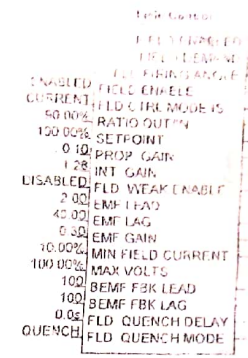 Field Control
FIELD ENABLED
FIELD DEMAND
FLD FIRING ANGLE
ENABLED FIELD ENABLE
CURRENT FLD CTRL MODE IS
90.00% RATIO OUT/IN
100.00% SETPOINT
0.10 PROP. GAIN
1.28 INT. GAIN
DISABLED FLD WEAK ENABLE
2.00 EMF LEAD
40.00 EMF LAG
0.30 EMF GAIN
10.00% MIN FIELD CURRENT
100.00% MAX VOLTS
100 BEMF FBK LEAD
100 BEMF FBK LAG
0.0s FLD. QUENCH DELAY
QUENCH FLD. QUENCH MODE